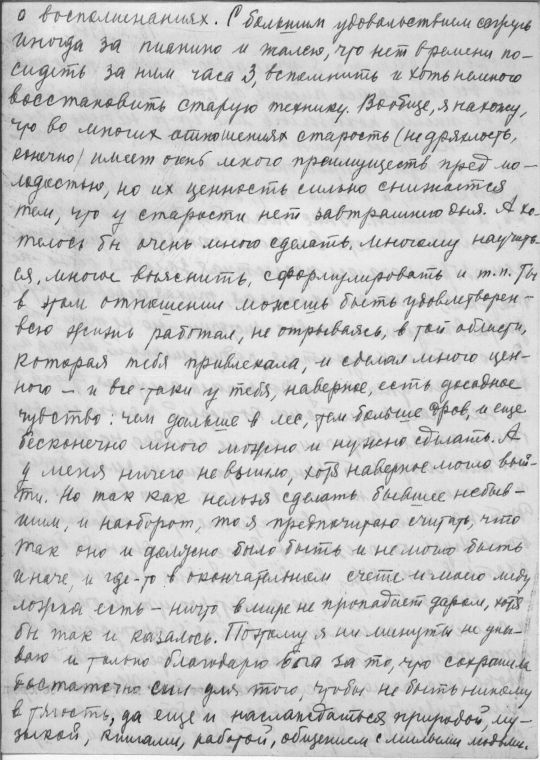 о воспоминаниях. С большим удовольствием сажусь
иногда за пианино и жалею, что нет времени по-
сидеть за ним часа 3, вспомнить и хоть немного
восстановить старую технику. Вообще, я нахожу,
что во многих отношениях старость (не дряхлость,
конечно) имеет очень много преимуществ пред мо-
лодостью, но их ценность сильно снижается
тем, что у старости нет завтрашнего дня. А хо-
телось бы очень много сделать, многому научить-
ся, многое выяснить, сформулировать и т.п. Ты
в этом отношении можешь быть удовлетворен -
всю жизнь работал, не отрываясь, в той области,
которая тебя привлекала, и сделал много цен-
ного - и все-таки у тебя, наверное, есть досадное
чувство: чем дальше в лес, тем больше дров, и еще
бесконечно много можно и нужно сделать. А
у меня ничего не вышло, хотя наверное могло вый-
ти. Но так как нельзя сделать бывшее небыв-
шим, и наоборот, то я предпочитаю считать, что
так оно и должно было быть и не могло быть
иначе, и где-то в окончательном счете и моего меду
ложка есть - ничто в мире не пропадает даром, хотя
бы так и казалось. Поэтому я ни минуты не уны-
ваю и только благодарю бога за то, что сохранила
достаточно сил для того, чтобы не быть никому
в тягость, да еще и наслаждаться природой, му-
зыкой, книгами, работой, общением с милыми людьми.